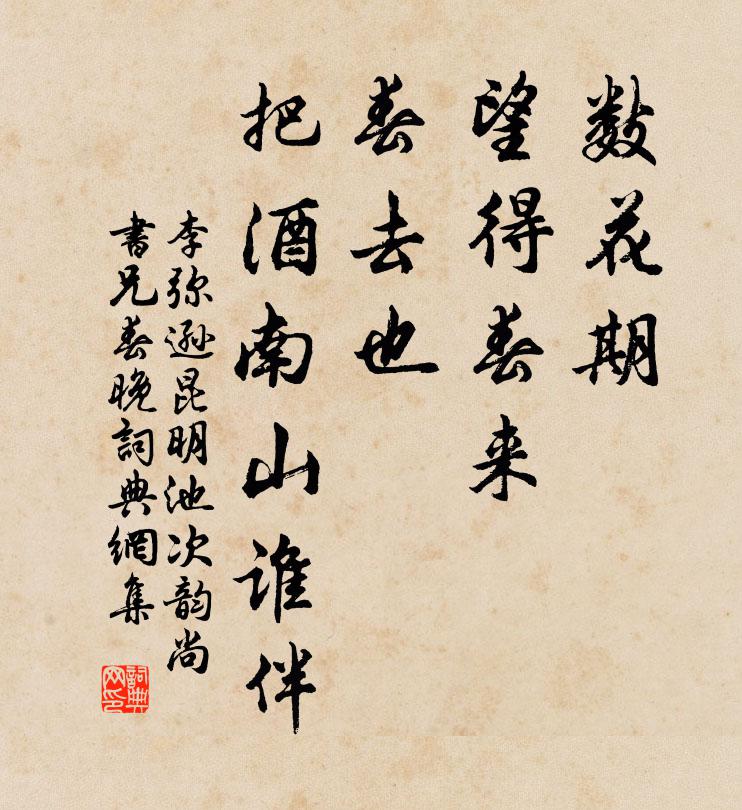 数花期
望得春来
春去也
把酒南山谁伴
李弥逊昆明池次韵尚
書兄春晚詞典網集
詞典
网印